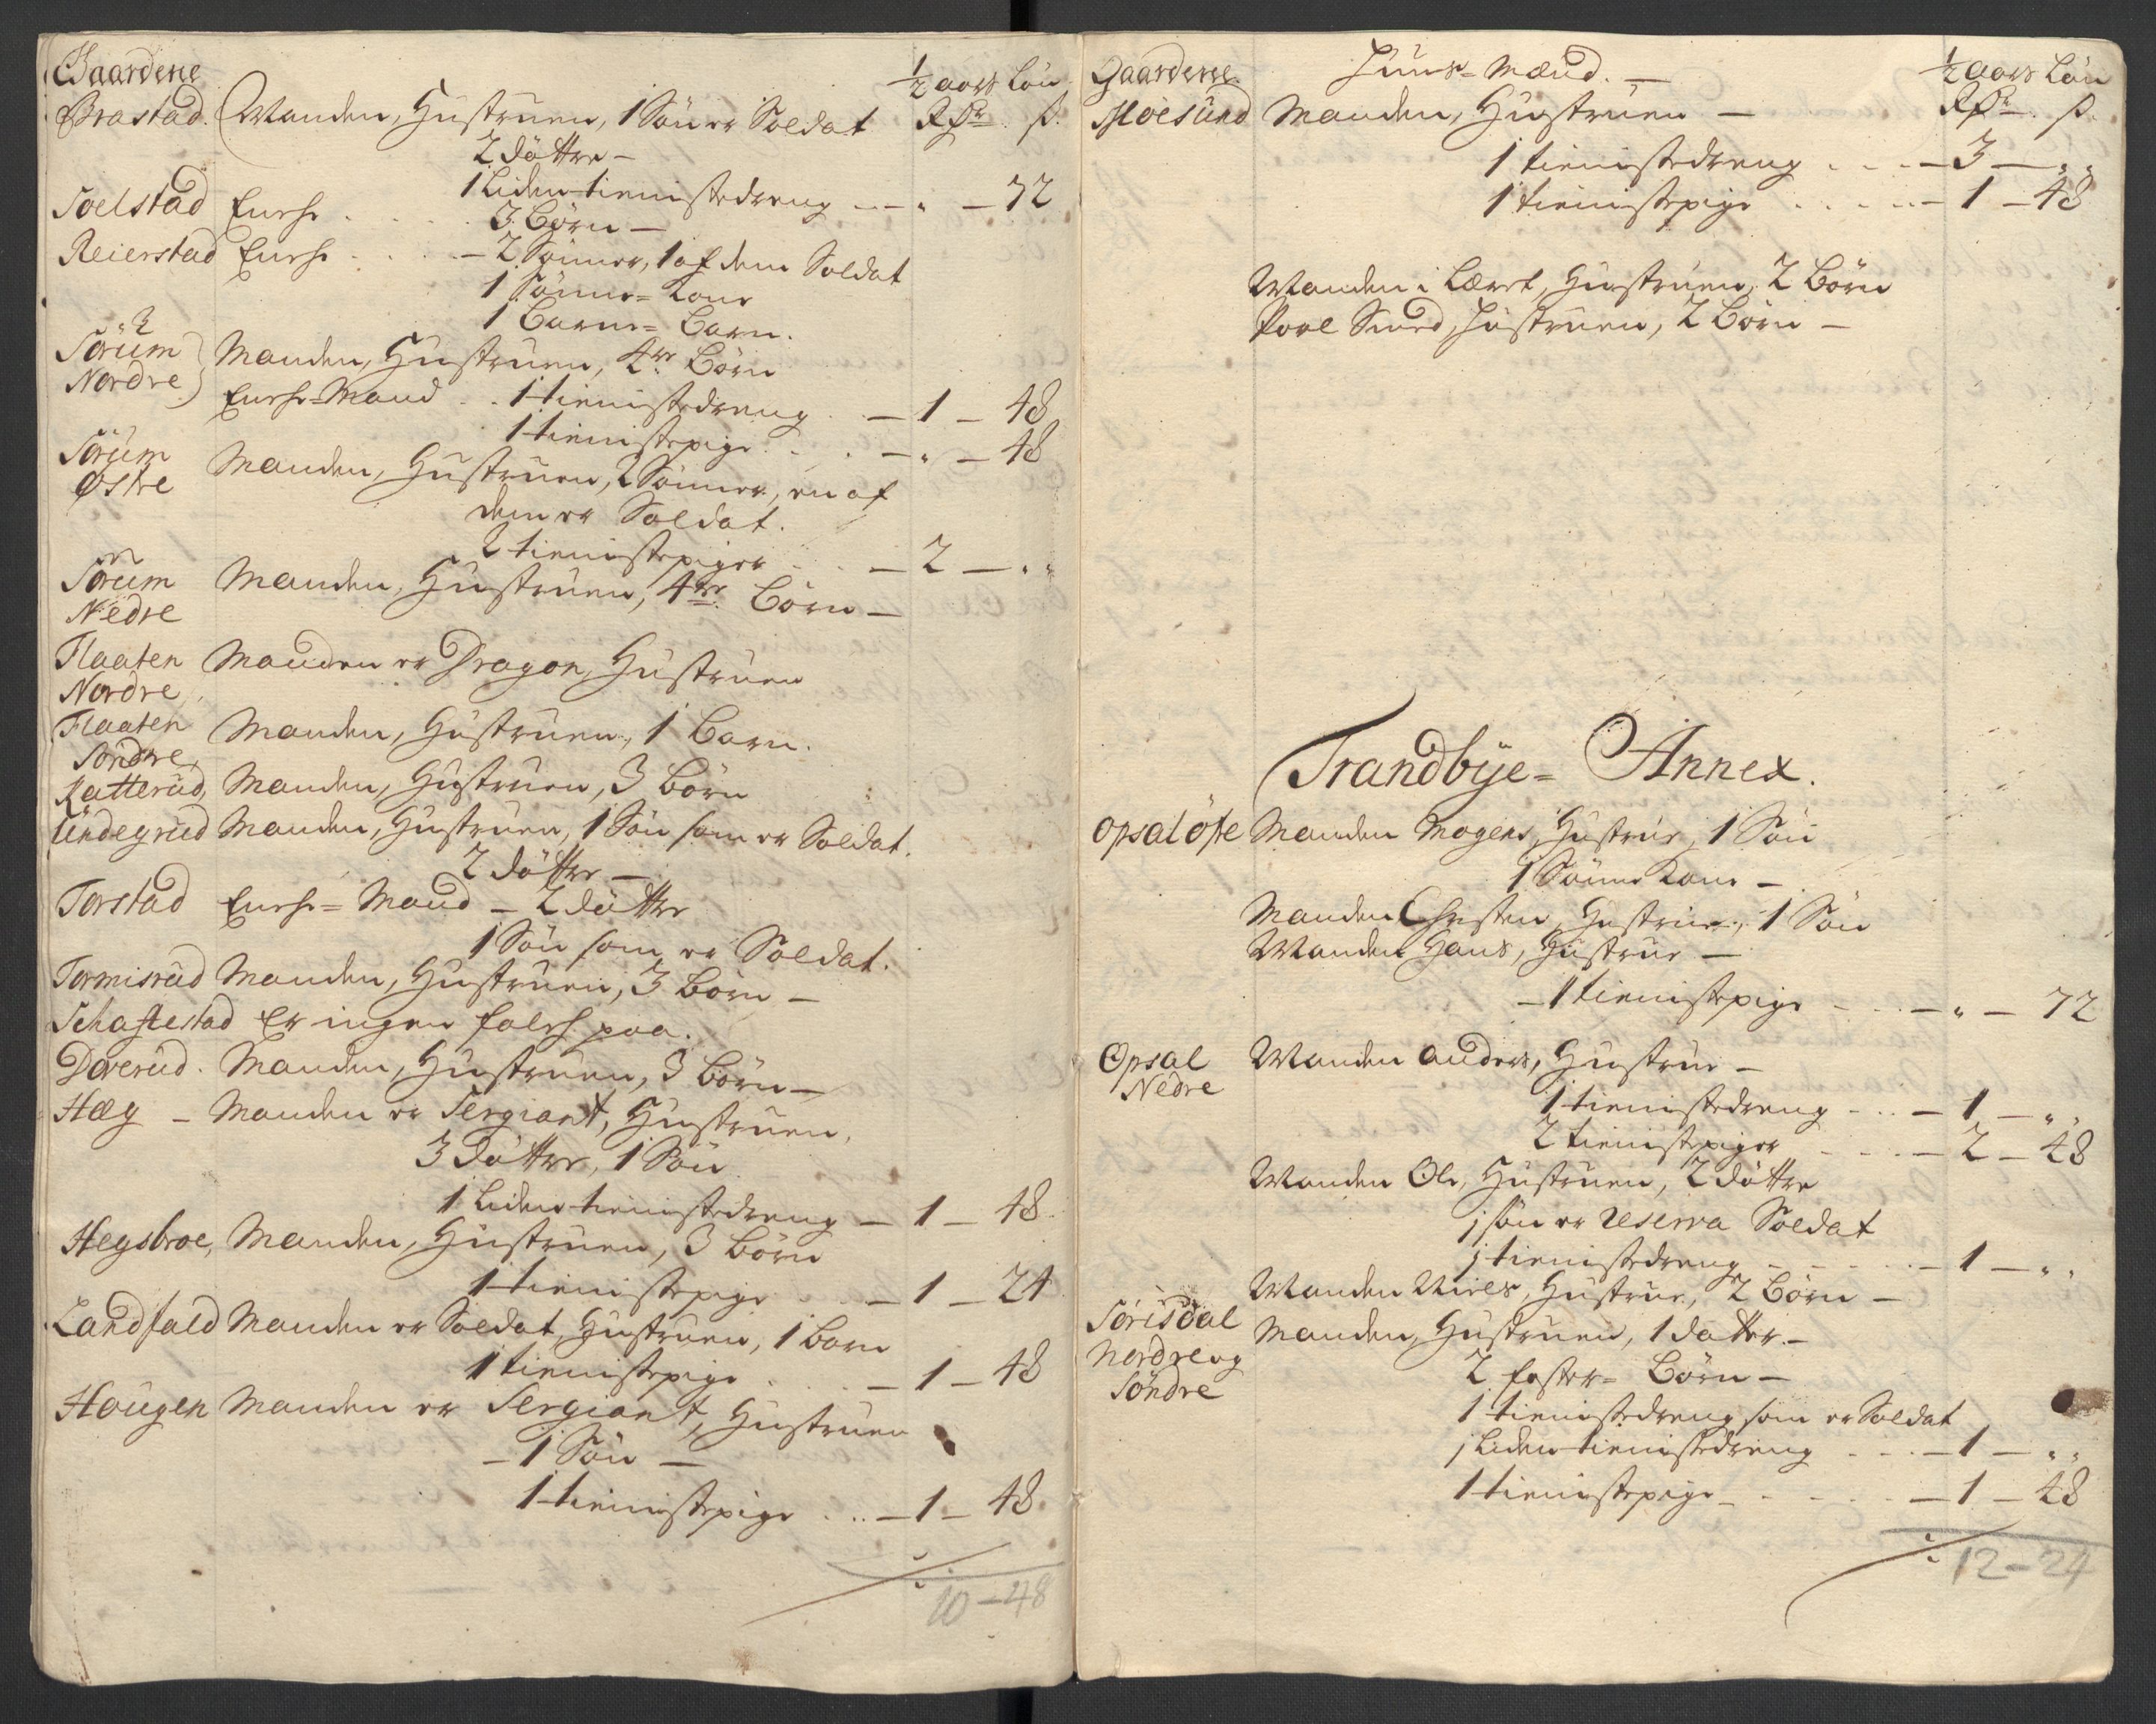 Gaardene
½ aars Løn
Brastad. Manden, Hustruen, 1 Søn er Soldat Rdr. ß.
2 døttre –
1 Liden tienistedreng – „ – 72
Soelstad Encke . . . 3 Børn –
Reierstad Encke . . . – 2 Sønner, 1 af dem Soldat
1 Sønne-Kone
1 Barne-Barn.
Sørum Nordre Manden, Hustruen, 4re Børn
Encke-Mand . . 1 tienistedreng . – 1 – 48
1 tienistepige . . . – „ – 48
Sørum Østre Manden, Hustruen, 2 Sønner, en af
dem er Soldat.
2 tienistepiger . . – 2 – „
Sørum Nedre Manden, Hustruen, 4re Børn –
Flaaten Nordre Manden er Dragon, Hustruen
Flaaten Søndre Manden, Hustruen, 1 Barn.
Katterud, Manden, Hustruen, 3 Børn
Lindegrud Manden, Hustruen, 1 Søn som er Soldat.
2 døttre –
Torstad Encke-Mand – 2 døttre
1 Søn som er Soldat.
Tormisrud Manden, Hustruen, 3 Børn –
Schaftestad Er ingen folch paa.
Doverud. Manden, Hustruen, 3 børn –
Hæg – Manden er Sergiant, Hustruen,
3 døttre, 1 Søn
1 Liden tienistedreng – 1 – 48
Hegsbroe, Manden, Hustruen, 3 børn
1 tienistepige . . – 1 – 24
Landfald Manden er Soldat, Hustruen, 1 barn
1 tienistepige . . – 1 – 48
Haugen Manden er Sergiant, Hustruen
– 1 Søn –
1 tienistepige . . – 1 – 48.
10 – 48
Gaardene. Huus-Mænd. – ½ aars Løn
Moesund Manden, Hustruen – Rdr. ß.
1 tienistedreng . . . – 3 – „
1 tienistepige . . . . – 1 – 48
Manden i Læret, Hustruen, 2 Børn
Povl Smed, Hustruen, 2 Børn –
Trandbye-Annex.
Opsal Øfre Manden Mogens, Hustrue, 1 Søn
1 Sønne Kone –
Manden Christen, Hustrue, 1 Søn
Manden Hans, Hustrue –
– 1 tienistepige – . . – „ – 72
Opsal Nedre Manden Anders, Hustrue –
1 tienistedreng – . . – 1 – „
2 tienistepiger . . – 2 – 48
Manden Ole, Hustruen, 2 døttre
1 søn er Reserva Soldat
1 tienistedreng – . . . – 1 – „
Manden Niels, Hustrue, 2 Børn –
Sørisdal Manden, Hustruen, 1 datter –
Nordre og 2 foster-Børn –
Søndre
1 tienistedreng som er Soldat
1 Liden tienistedreng . . – 1 – „
1 tienistepige – . . . – 1 – 48
12 – 24